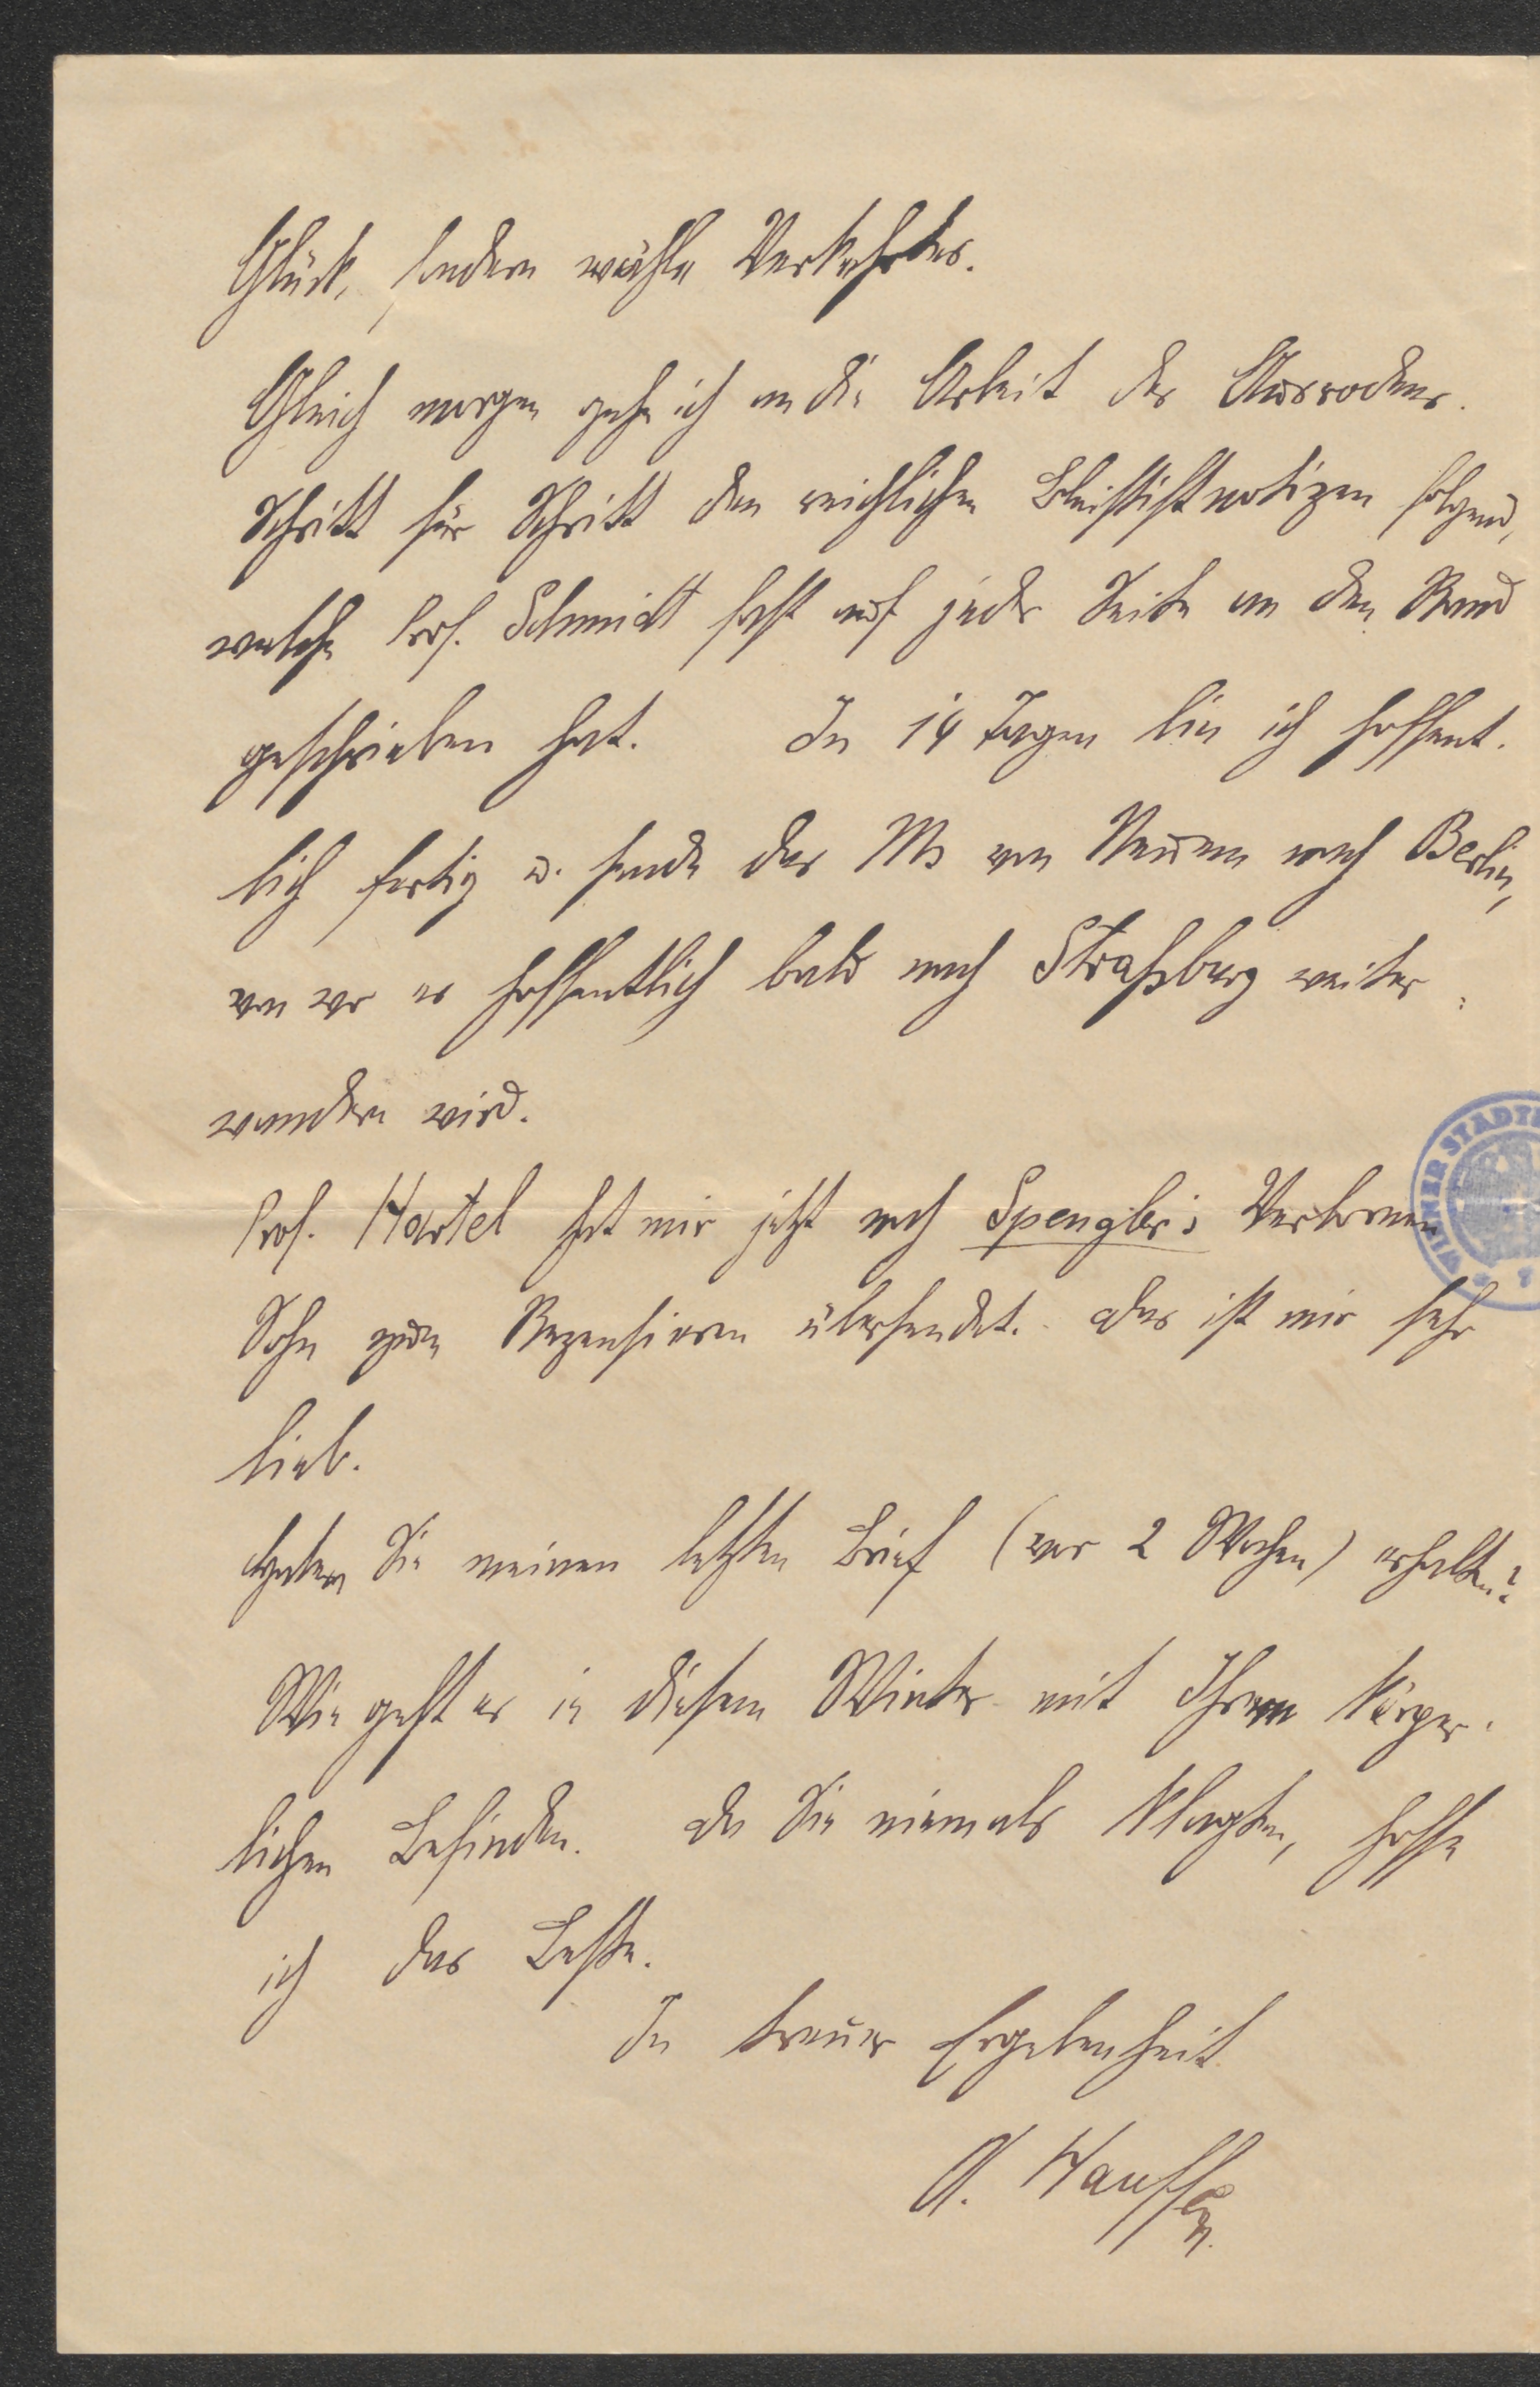 Glück, sondern wähle Verkehrtes.
Gleich morgen gehe ich an die Arbeit des Ausrodens.
Schritt für Schritt den reichlichen Bleistiftnotizen folgend,
welche Prof. Schmidt fast auf jeder Seite an den Rand
geschrieben hat. In 14 Tagen bin ich hoffent-
lich fertig u. sende das Ms von Neuem nach Berlin,
von wo es hoffentlich bald nach Straßburg weiter-
wandern wird.
Prof. Hartel hat mir jetzt noch Spengler's Verlornen
Sohn zum Rezensieren übersendet. das ist mir sehr
lieb.
Haben Sie meinen letzten Brief (vor 2 Wochen) erhalten?
Wie geht es in diesem Winter mit Ihrem körper-
lichen Befinden. da Sie niemals klagten, hoffe
ich das Beste.
In treuer Ergebenheit
A. Hauffen.
WIENER STADT